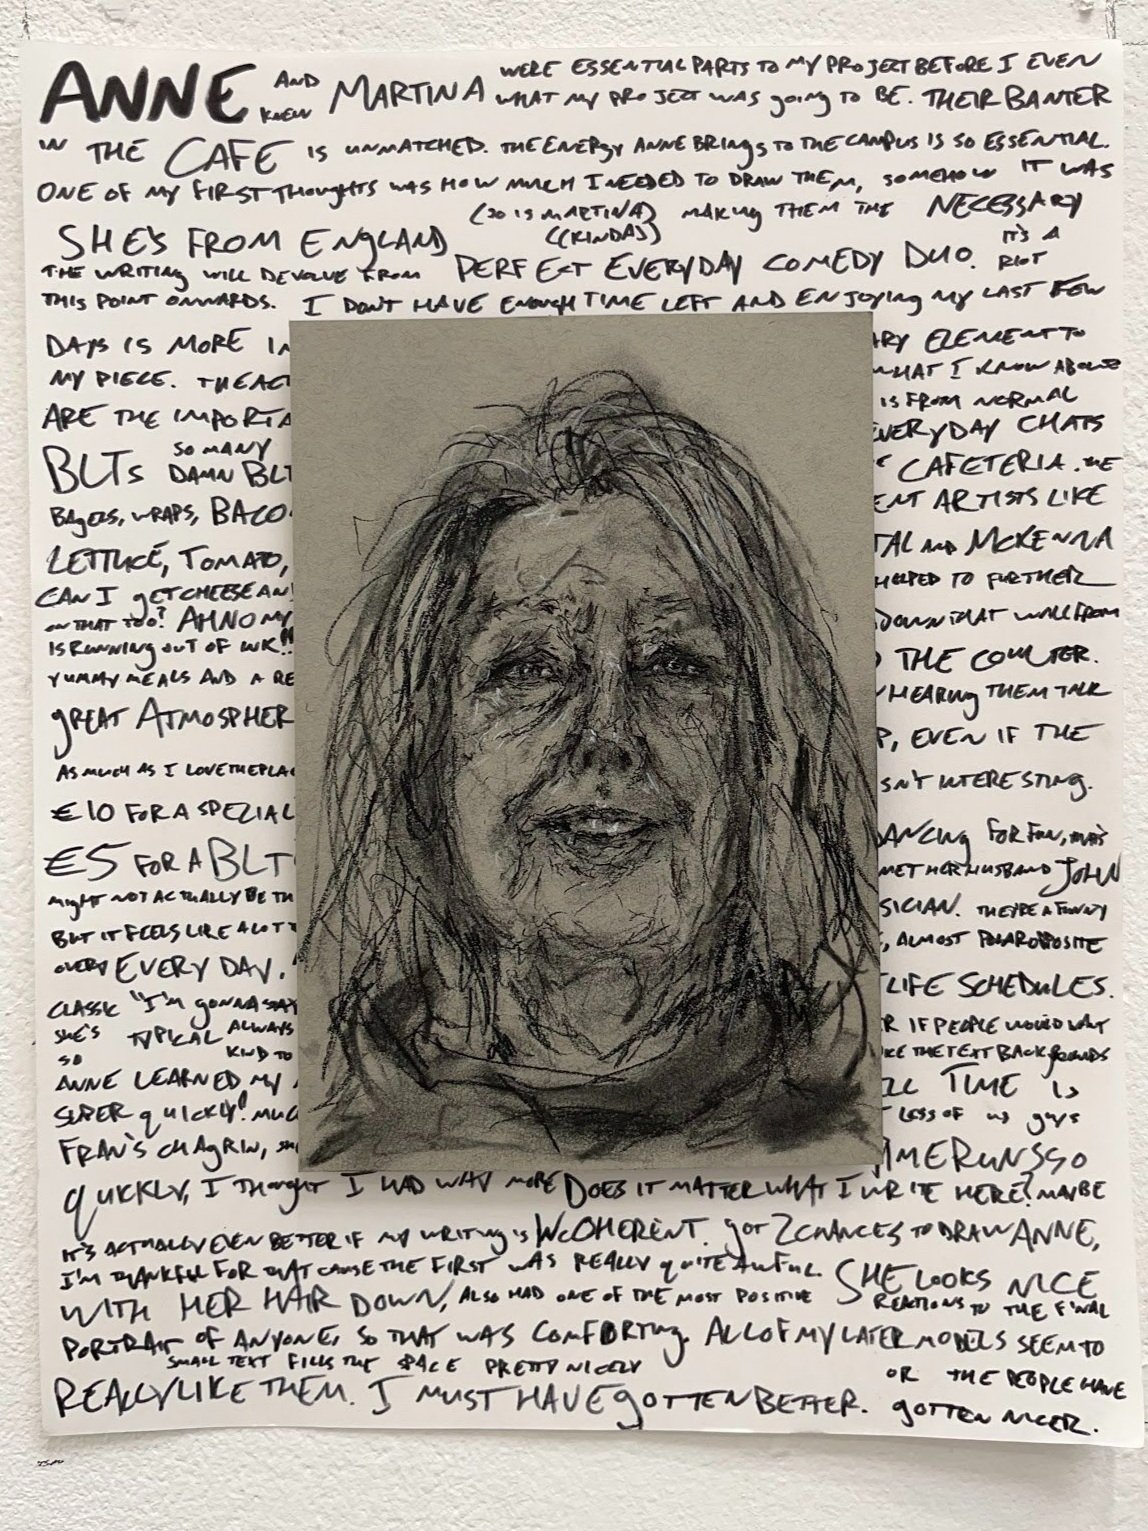 ANNE AND MARTINA WERE ESSENTIAL PARTS TO MY PROJECT BEFORE I EVEN
KNEW WHAT MY PROJECT WAS going TO BE. THEIR BANTER
IN THE CAFE IS UNMATCHED. THE ENERGY ANNE BRINGS TO THE CAMPUS IS SO ESSENTIAL.
ONE OF MY FIRST THOUGHTS WAS HOW MUCH I NEEDED TO DRAW THEM, SOMEHOW IT WAS
(SO IS MARTINA) MAKING THEM THE NECESSARY
SHE'S FROM ENGLAND ((KINDA)) IT'S A
THE WRITING WILL DEVOLVE FROM PERFECT EVERYDAY COMEDY DUO. RIOT
THIS POINT ONWARDS. I DON'T HAVE ENOUGH TIME LEFT AND ENJOYING MY LAST FEW
DAYS IS MORE ARY ELEMENT TO
MY PIECE. WHAT I KNOW ABOVE
ARE THE IMPORTA IS FROM NORMAL
SO MANY EVERYDAY CHATS
BLTS DAMN BLT CAFETERIA. THE
BAGELS, WRAPS, BACO ENT ARTISTS LIKE
LETTUCE, TOMATO, TAL AND MCKENNA
CAN I GET CHEESE AN HELPED TO FURTHER
ON THAT TOO? AH NO MY DOWN THAT WALL FROM
IS RUNNING OUT OF INK!! THE COUNTER.
YUMMY MEALS AND A RE HEARING THEM TALK
GREAT ATMOSPHER P, EVEN IF THE
AS MUCH AS I LOVE THE PLA SN'T INTERESTING.
€10 FOR A SPECIAL
€5 FOR A BLT DANCING FOR FUN, THAT'S
MET HER HUSBAND JOHN
MIGHT NOT ACTUALLY BE TH SICIAN. THEY'RE A FUNNY
BUT IT FEELS LIKE A LOT , ALMOST POLAR OPPOSITE
EVERY DAY. LIFE SCHEDULES.
CLASSIC "I'M GONNA STAY R IF PEOPLE WOULD WANT
SHE'S TYPICAL ALWAYS KE THE TEXT BACKGROUNDS
SO KIND TO
ANNE LEARNED MY TIME IS
SUPER QUICKLY! MUC LESS OF US GUYS
FRAN'S CHAGRIN, IME RUNS SO
QUICKLY, I THOUGHT I HAD WAY MORE DOES IT MATTER WHAT I WRITE HERE? MAYBE
IT'S ACTUALLY EVEN BETTER IF MY WRITING IS INCOHERENT. GOT 2 CHANCES TO DRAW ANNE,
I'M THANKFUL FOR THAT CAUSE THE FIRST WAS REALLY QUITE AWFUL. SHE LOOKS NICE
WITH HER HAIR DOWN, ALSO HAD ONE OF THE MOST POSITIVE REACTIONS TO THE FINAL
PORTRAIT OF ANYONE, SO THAT WAS COMFORTING. ALL OF MY LATER MODELS SEEM TO
SMALL TEXT FILLS THE SPACE PRETTY NICELY
REALLY LIKE THEM. I MUST HAVE GOTTEN BETTER. OR THE PEOPLE HAVE
GOTTEN NICER.